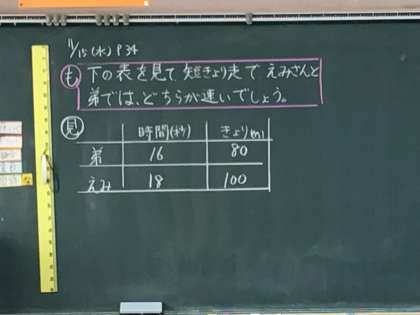 11/15(水) P34
も 下の表を見て 短きょり走で えみさんと
弟では、どちらが速いでしょう。
見
時間(秒) きょり(m)
弟 16 80
えみ 18 100